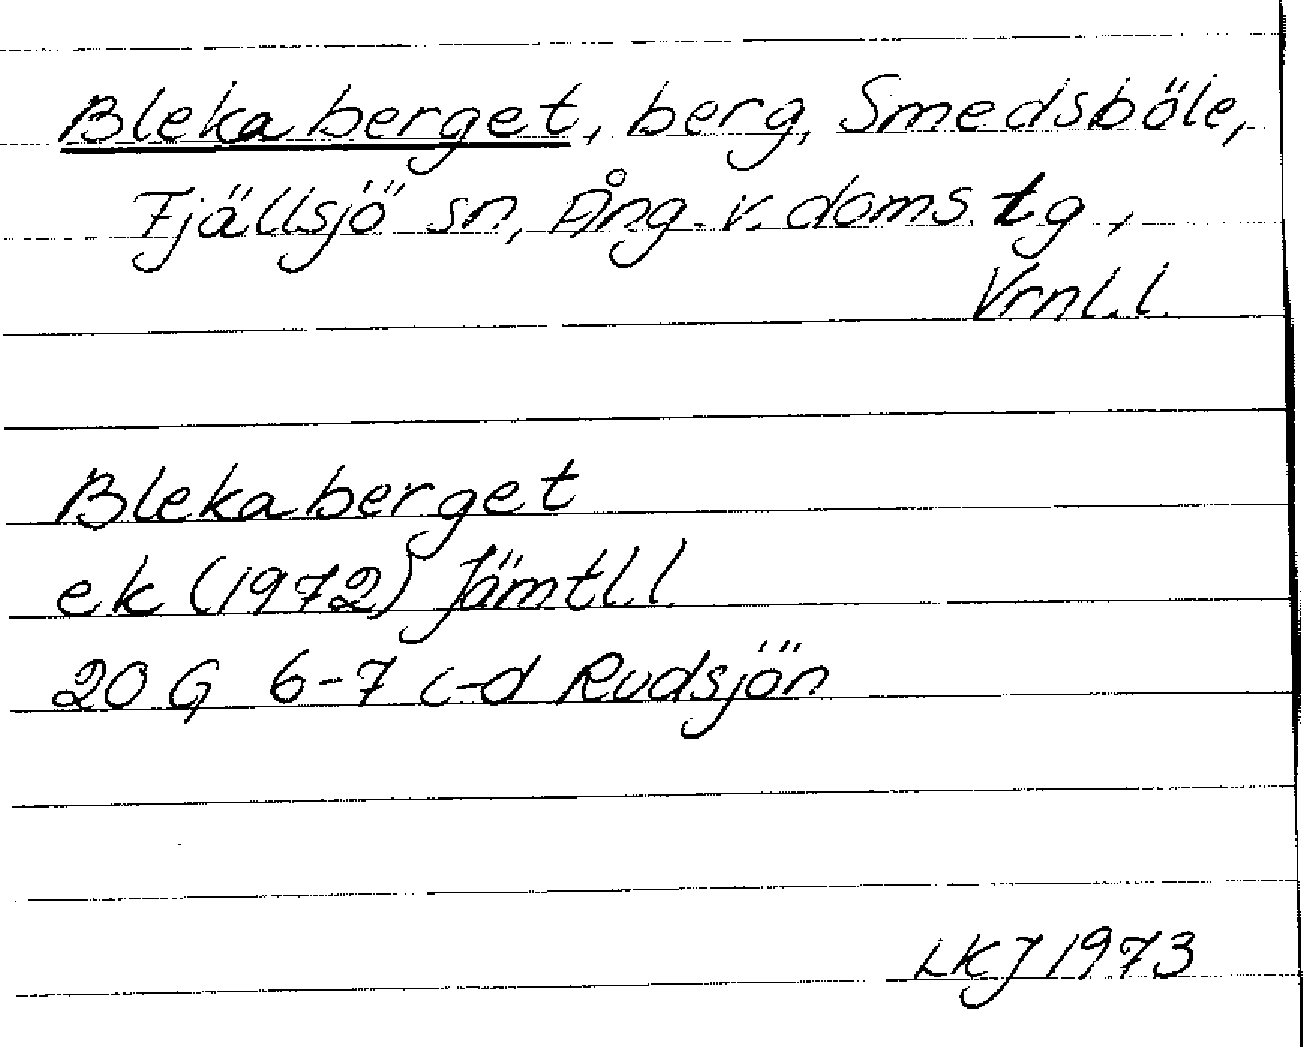 Blekaberget, berg, Smedsböle,
Fjällsjö sn, Ång. v. doms.tg,
Vrnl.l.
Blekaberget
ek (1972) Jämtl.l.
20 G 6-7 c-d Rudsjön
LKJ 1973